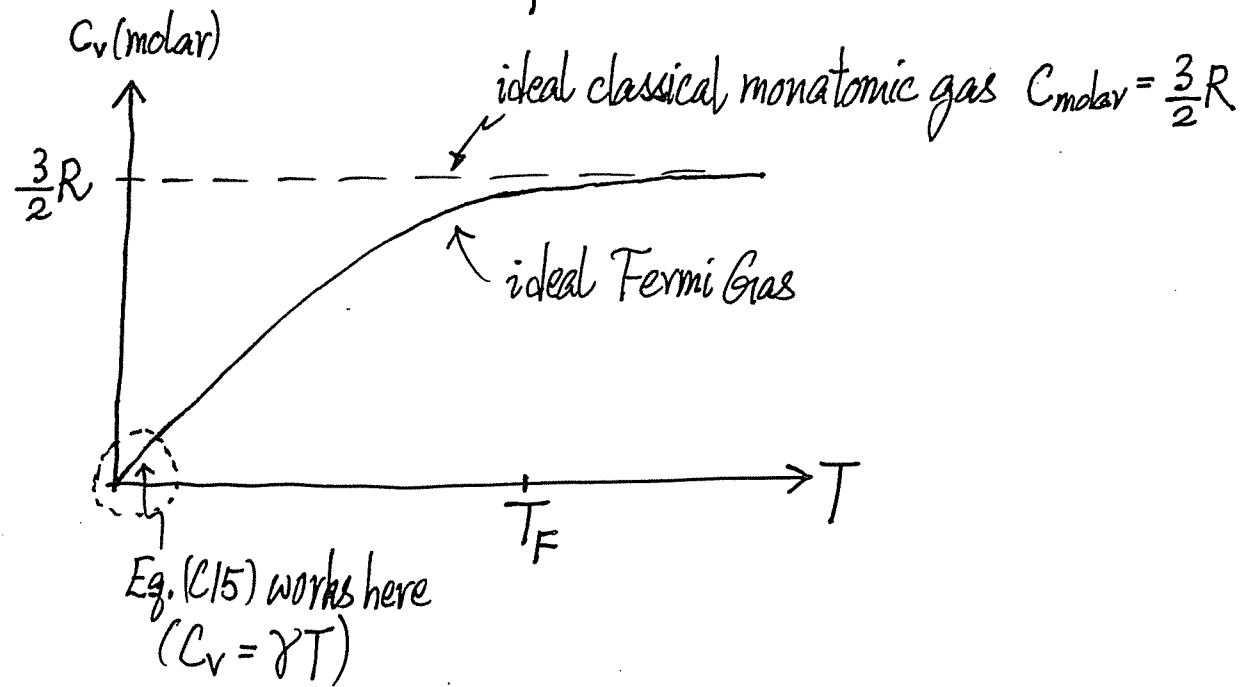 Cᵥ (molar)
ideal classical monatomic gas C_molar = 3/2 R
3/2 R
ideal Fermi Gas
T
T_F
Eq. (C15) works here
(Cᵥ = γT)